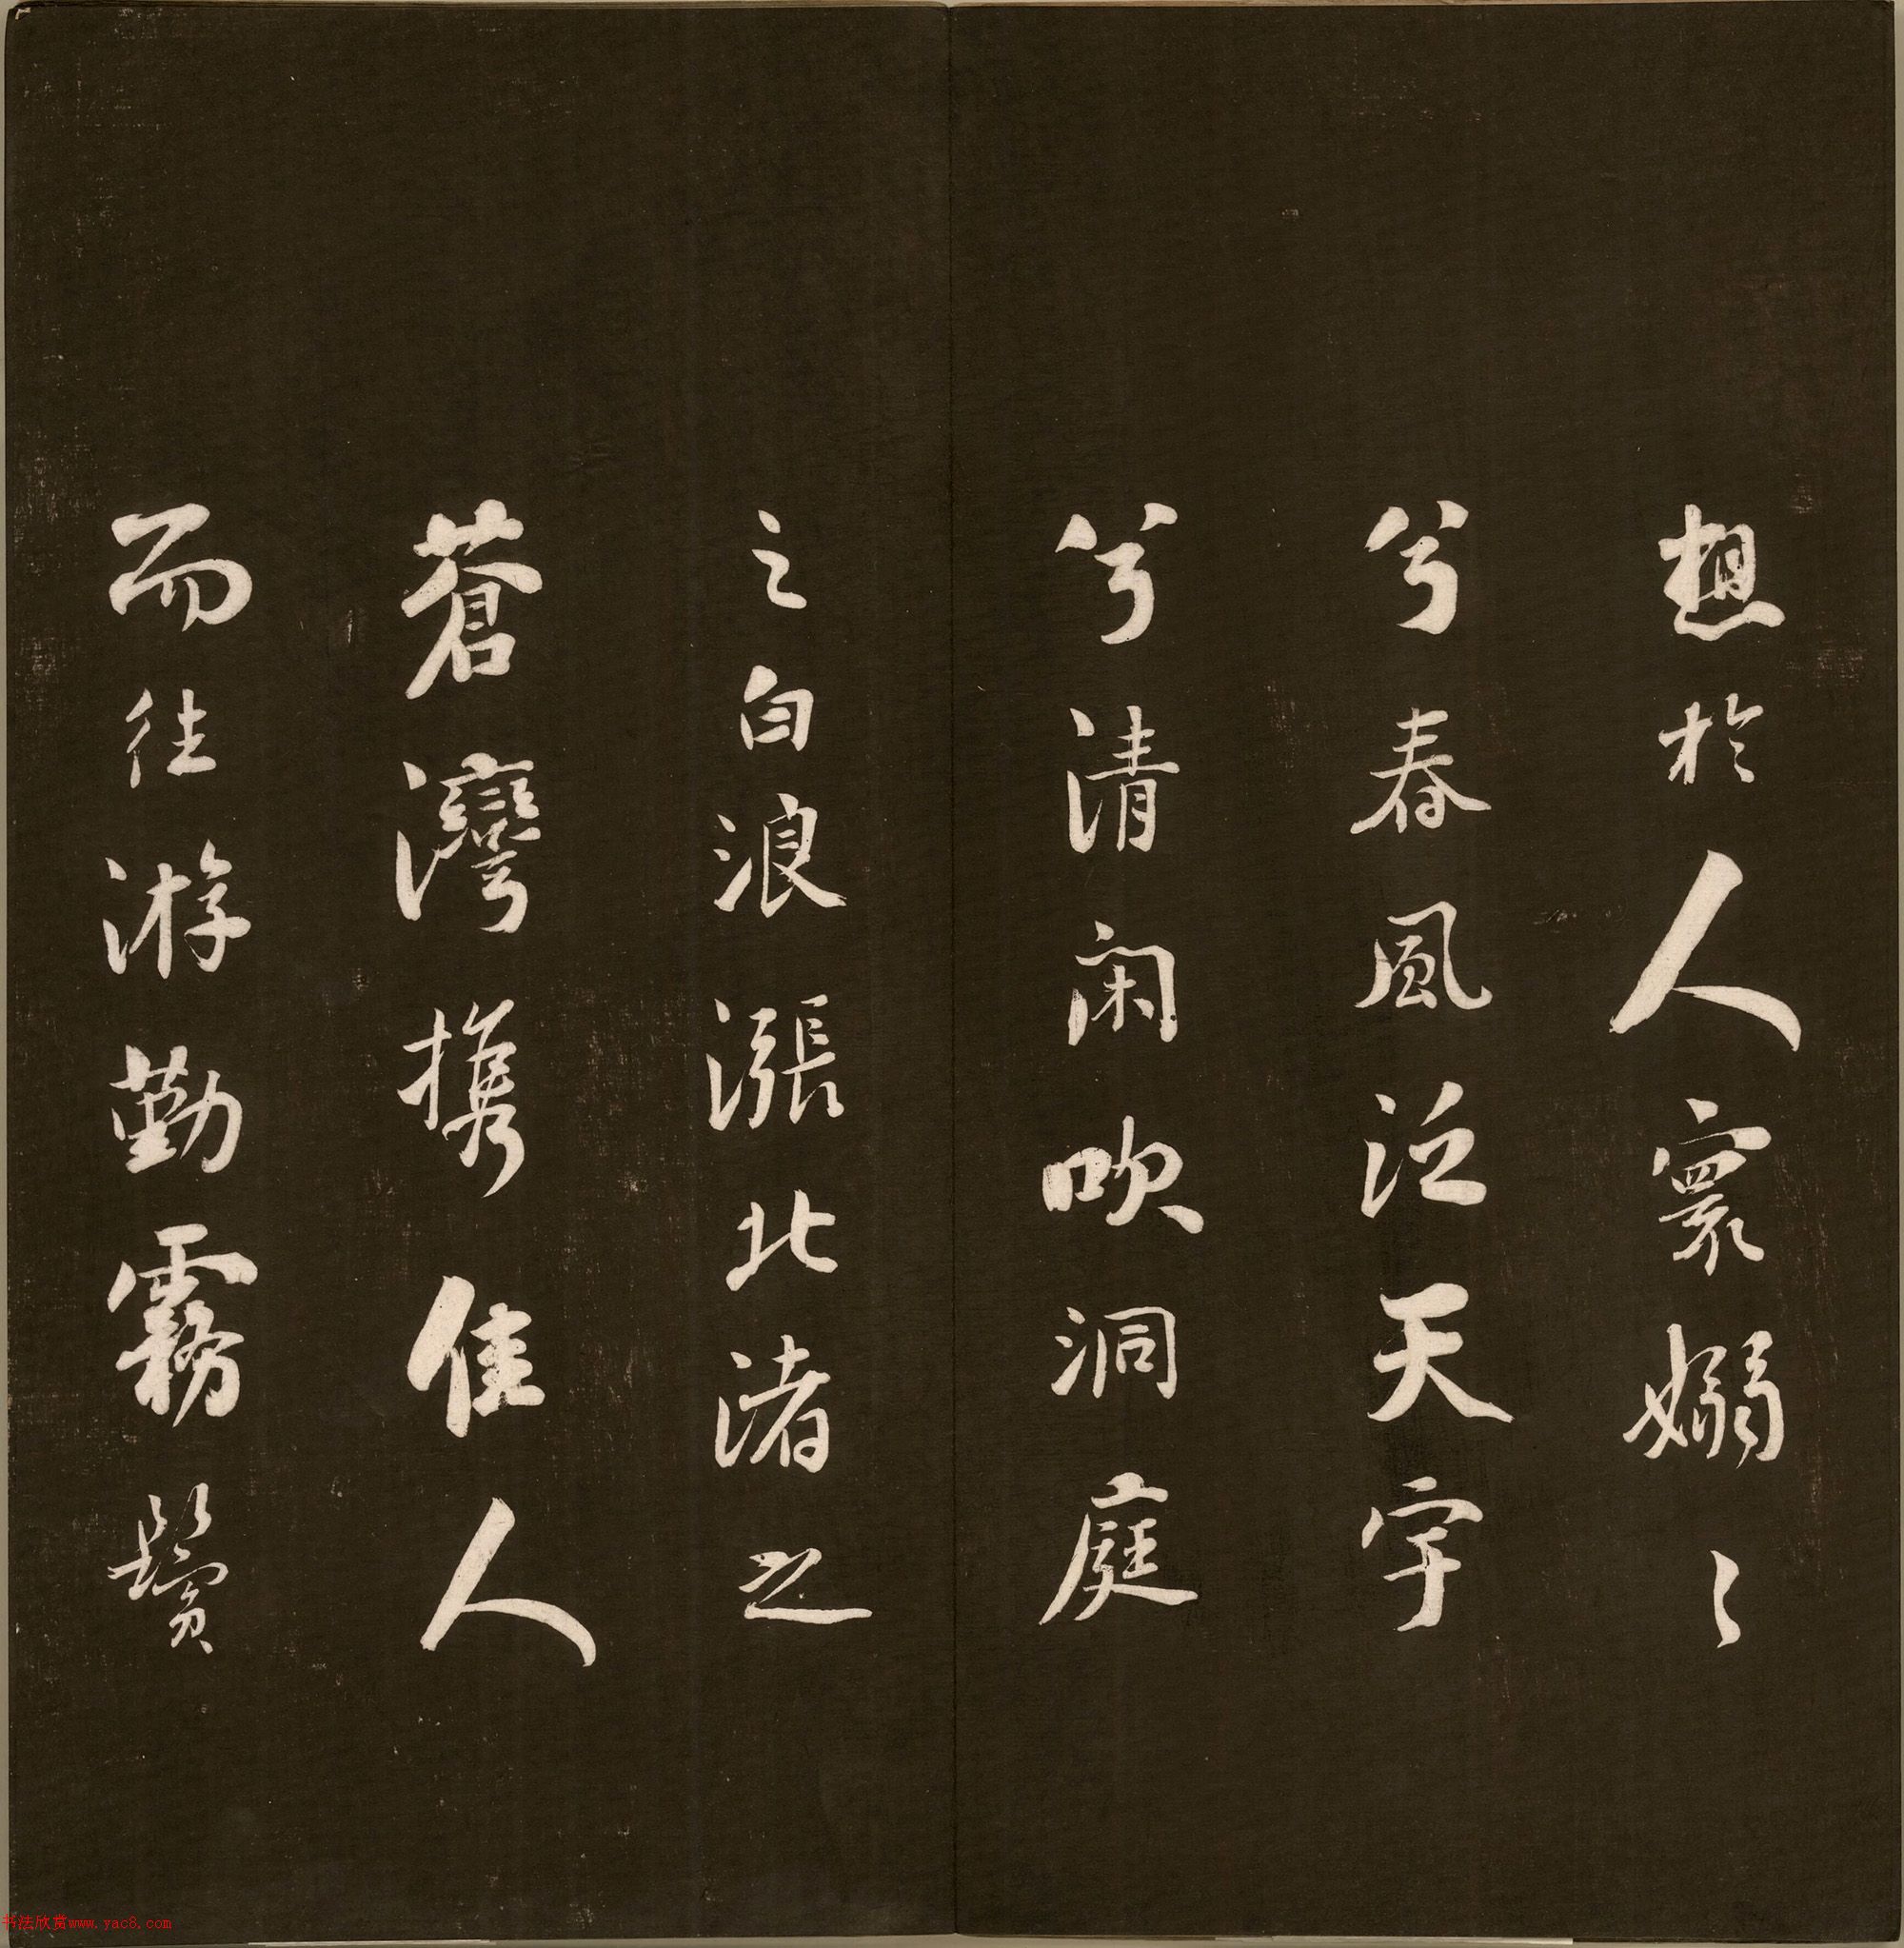 想於人寰嫋〻
兮春風泛天宇
兮清閑吹洞庭
之白浪漲北渚之
蒼灣携佳人
而往游勤霧鬢
书法欣赏www.yac8.com